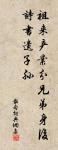 祖来产业分兄弟身后
诗书遗子孙